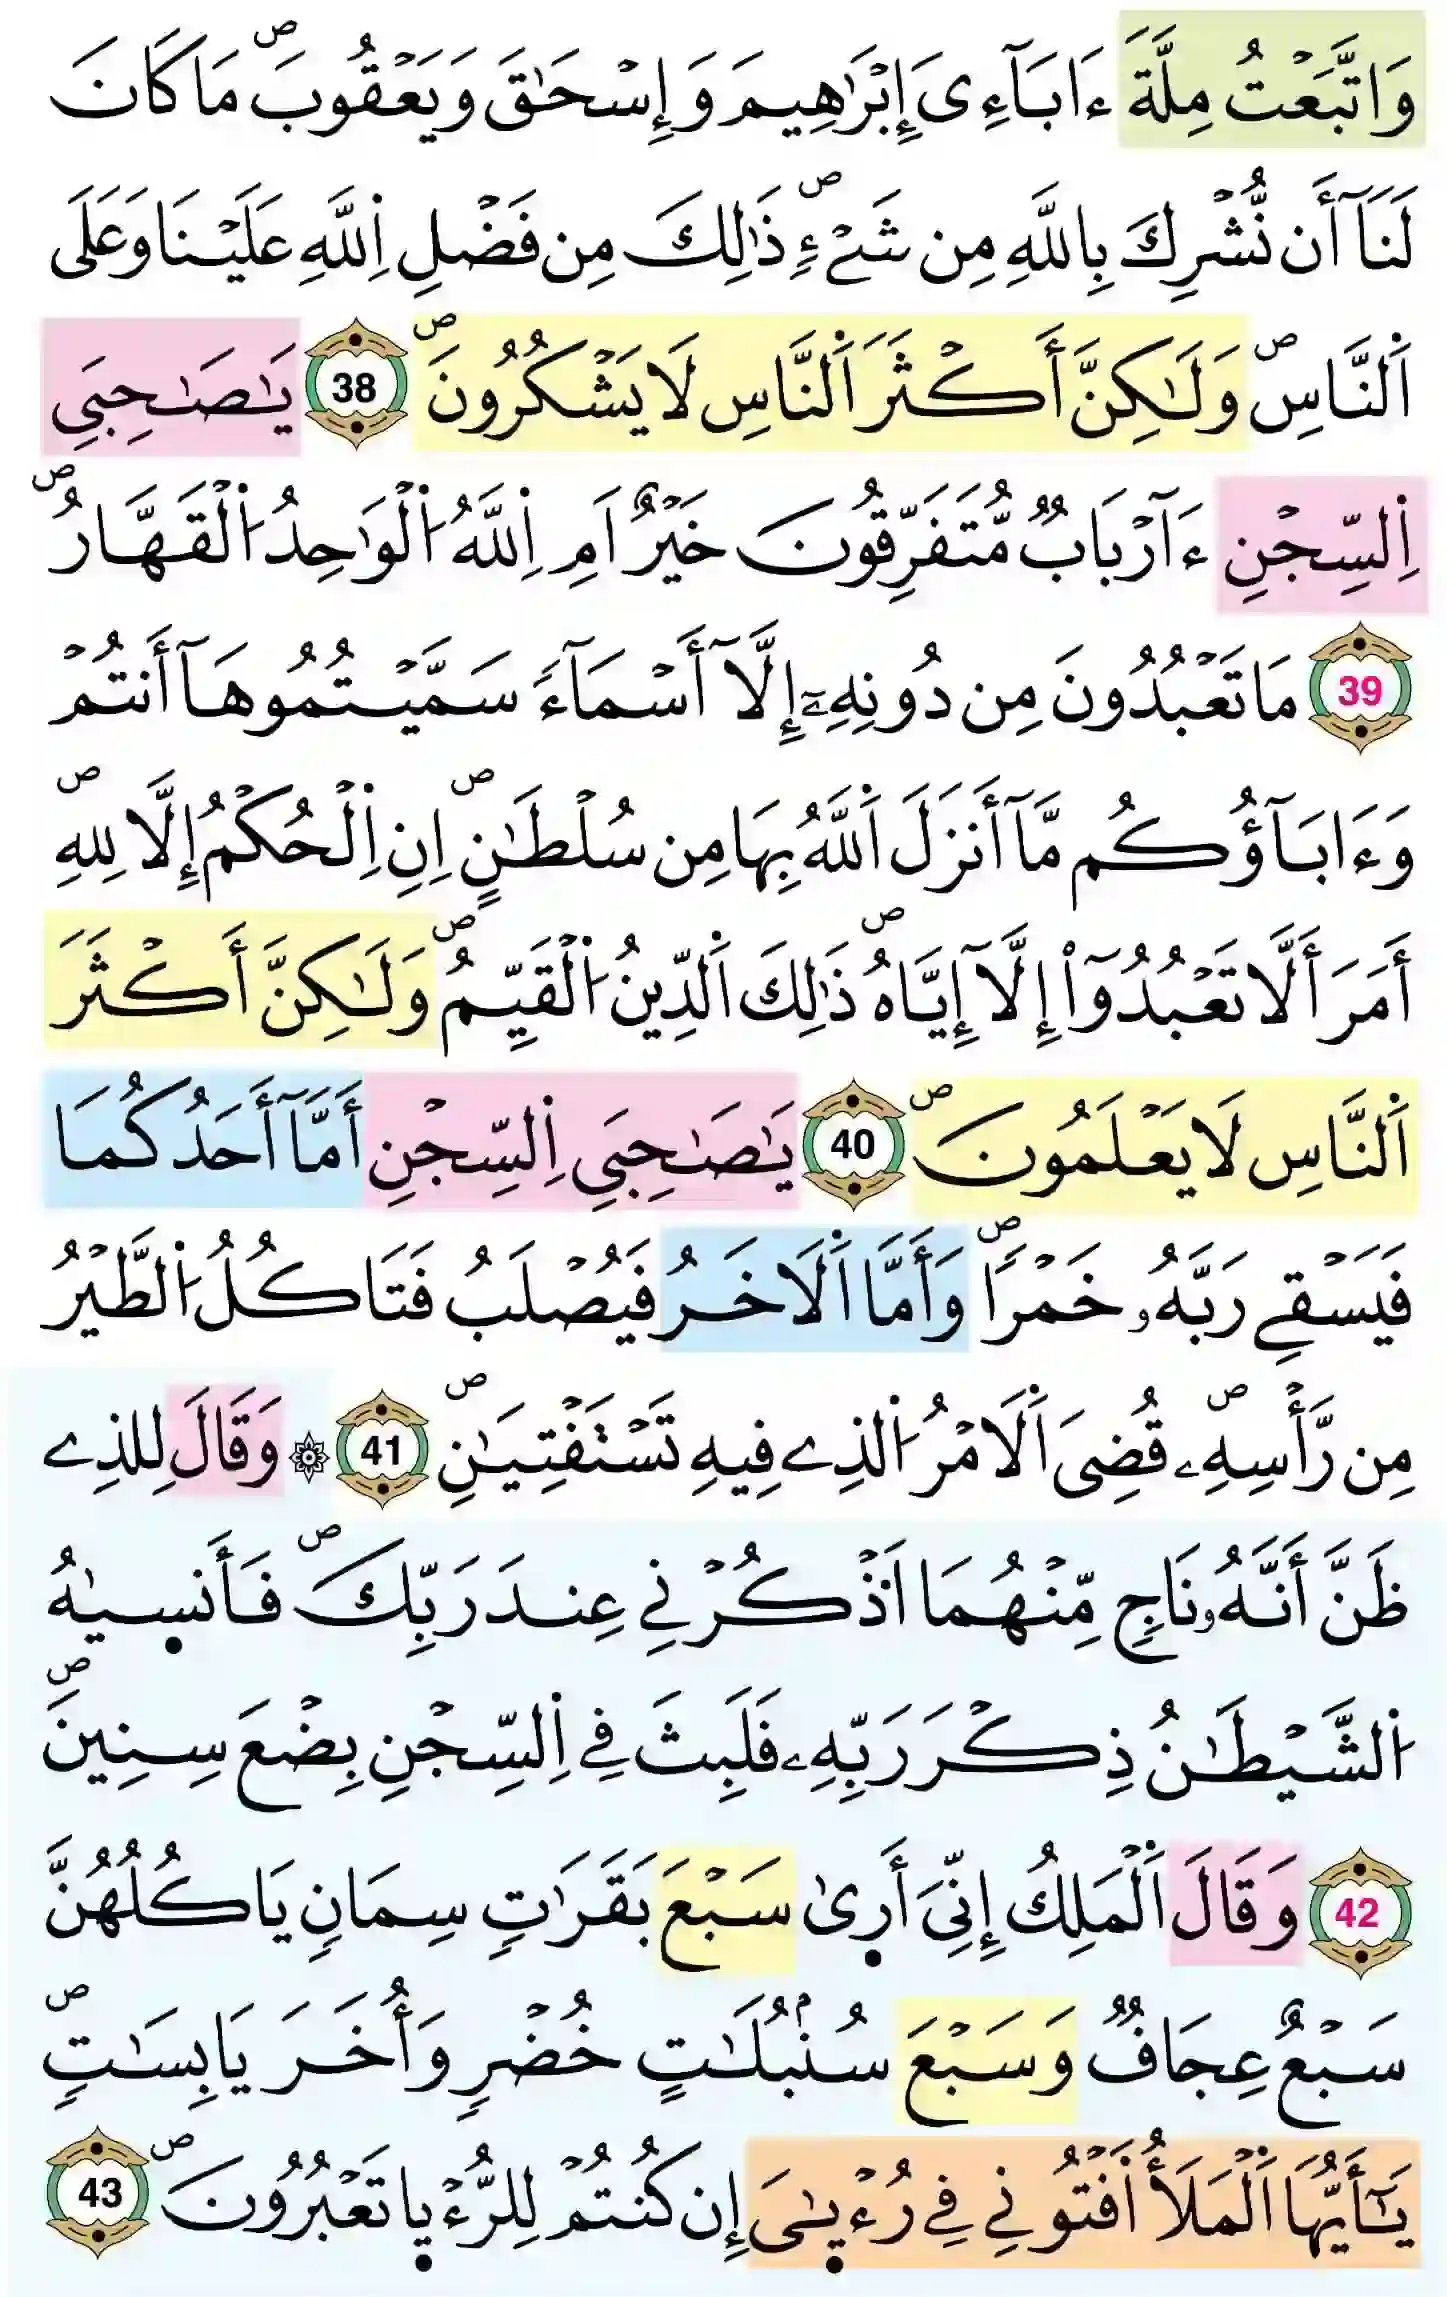 وَاتَّبَعْتُ مِلَّةَ ءَابَآءِىَ إِبْرَٰهِيمَ وَإِسْحَٰقَ وَيَعْقُوبَۖ مَا كَانَ
لَنَآ أَن نُّشْرِكَ بِاللَّهِ مِن شَےْءٖۖ ذَٰلِكَ مِن فَضْلِ اِ۬للَّهِ عَلَيْنَا وَعَلَى
اَ۬لنَّاسِۖ وَلَٰكِنَّ أَكْثَرَ اَ۬لنَّاسِ لَا يَشْكُرُونَۖ 38 يَٰصَٰحِبَيِ
اِ۬لسِّجْنِ ءَآرْبَابٞ مُّتَفَرِّقُونَ خَيْرٌ اَمِ اِ۬للَّهُ اُ۬لْوَٰحِدُ اُ۬لْقَهَّارُۖ
39 مَا تَعْبُدُونَ مِن دُونِهِۦٓ إِلَّآ أَسْمَآءٗ سَمَّيْتُمُوهَآ أَنتُمْ
وَءَابَآؤُكُم مَّآ أَنزَلَ اَ۬للَّهُ بِهَا مِن سُلْطَٰنٍۖ اِنِ اِ۬لْحُكْمُ إِلَّا لِلهِۖ
أَمَرَ أَلَّا تَعْبُدُوٓاْ إِلَّآ إِيَّاهُۖ ذَٰلِكَ اَ۬لدِّينُ اُ۬لْقَيِّمُۖ وَلَٰكِنَّ أَكْثَرَ
اَ۬لنَّاسِ لَا يَعْلَمُونَۖ 40 يَٰصَٰحِبَيِ اِ۬لسِّجْنِ أَمَّآ أَحَدُكُمَا
فَيَسْقِے رَبَّهُۥ خَمْراٗۖ وَأَمَّا اَ۬لَاخَرُ فَيُصْلَبُ فَتَاكُلُ اُ۬لطَّيْرُ
مِن رَّأْسِهِۦۖ قُضِىَ اَ۬لَامْرُ اُ۬لذِے فِيهِ تَسْتَفْتِيَٰنِۖ 41 ۞ وَقَالَ لِلذِے
ظَنَّ أَنَّهُۥ نَاجٖ مِّنْهُمَا اَ۟ذْكُرْنِے عِندَ رَبِّكَۖ فَأَنسيٰهُ
اُ۬لشَّيْطَٰنُ ذِكْرَ رَبِّهِۦ فَلَبِثَ فِے اِ۬لسِّجْنِ بِضْعَ سِنِينَۖ
42 وَقَالَ اَ۬لْمَلِكُ إِنِّىَ أَر۪يٰ سَبْعَ بَقَرَٰتٖ سِمَانٖ يَاكُلُهُنَّ
سَبْعٌ عِجَافٞ وَسَبْعَ سُنۢبُلَٰتٍ خُضْرٖ وَأُخَرَ يَابِسَٰتٖۖ
يَٰٓأَيُّهَا اَ۬لْمَلَأُ اَ۬فْتُونِے فِے رُءْيٰ۪ىَ إِن كُنتُمْ لِلرُّءْي۪ا تَعْبُرُونَۖ 43